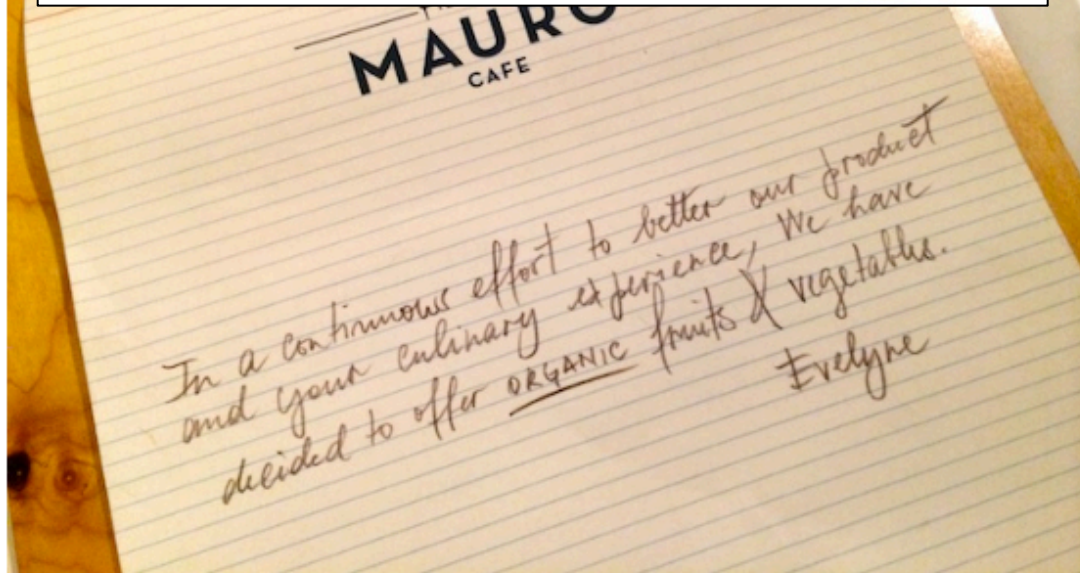 MAURO
CAFE
In a continuous effort to better our product
and your culinary experience, We have
decided to offer ORGANIC fruits & vegetables.
Evelyne